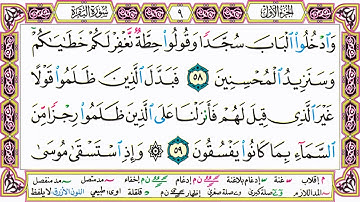 الجزء الأول
٩
سورة البقرة
وَادْخُلُوا الْبَابَ سُجَّدًا وَقُولُوا حِطَّةٌ نَّغْفِرْ لَكُمْ خَطَايَاكُمْ
وَسَنَزِيدُ الْمُحْسِنِينَ ٥٨ فَبَدَّلَ الَّذِينَ ظَلَمُوا قَوْلًا
غَيْرَ الَّذِي قِيلَ لَهُمْ فَأَنزَلْنَا عَلَى الَّذِينَ ظَلَمُوا رِجْزًا مِّنَ
السَّمَاءِ بِمَا كَانُوا يَفْسُقُونَ ٥٩ وَإِذِ اسْتَسْقَىٰ مُوسَىٰ